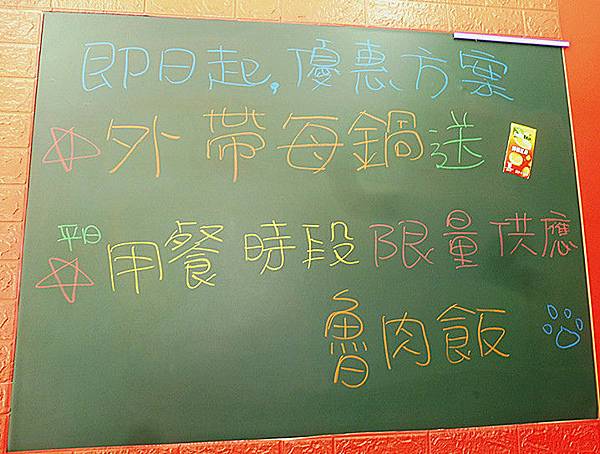 即日起,優惠方案
☆外帶每鍋送
平日
☆用餐時段限量供應
魯肉飯